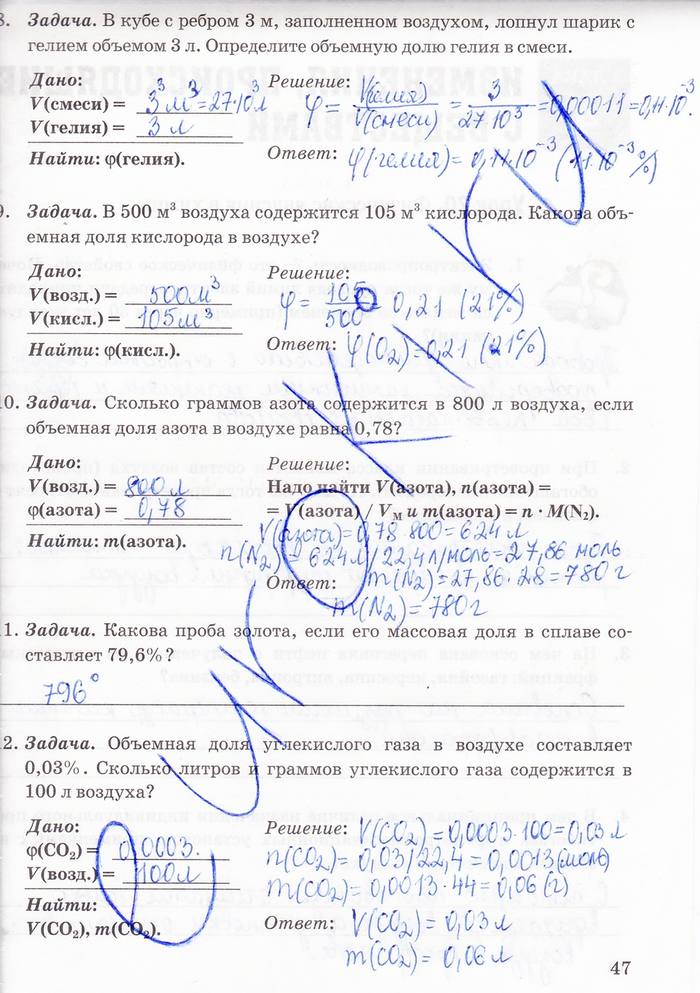 8. Задача. В кубе с ребром 3 м, заполненном воздухом, лопнул шарик с
гелием объемом 3 л. Определите объемную долю гелия в смеси.
Дано:
V(смеси) = 3³м³=27·10³л
V(гелия) = 3 л
Найти: φ(гелия).
Решение:
φ = V(гелия)/V(смеси) = 3/27·10³ = 0,00011 = 0,11·10⁻³
Ответ: φ(гелия) = 0,11·10⁻³ (11·10⁻³%)
9. Задача. В 500 м³ воздуха содержится 105 м³ кислорода. Какова объ-
емная доля кислорода в воздухе?
Дано:
V(возд.) = 500м³
V(кисл.) = 105м³
Найти: φ(кисл.).
Решение:
φ = 105/500 = 0,21 (21%)
Ответ: φ(O₂) = 0,21 (21%)
10. Задача. Сколько граммов азота содержится в 800 л воздуха, если
объемная доля азота в воздухе равна 0,78?
Дано:
V(возд.) = 800 л
φ(азота) = 0,78
Найти: m(азота).
Решение:
Надо найти V(азота), n(азота) =
= V(азота) / Vм и m(азота) = n · M(N₂).
V(азота) = 0,78·800 = 624 л
n(N₂) = 624л/22,4л/моль = 27,86 моль
Ответ: m(N₂) = 27,86·28 = 780 г
m(N₂) = 780г
11. Задача. Какова проба золота, если его массовая доля в сплаве со-
ставляет 79,6%?
796°
12. Задача. Объемная доля углекислого газа в воздухе составляет
0,03%. Сколько литров и граммов углекислого газа содержится в
100 л воздуха?
Дано:
φ(CO₂) = 0,0003.
V(возд.) = 100л
Найти:
V(CO₂), m(CO₂).
Решение: V(CO₂) = 0,0003·100 = 0,03 л
n(CO₂) = 0,03/22,4 = 0,0013 (моль)
m(CO₂) = 0,0013·44 = 0,06 (г)
Ответ: V(CO₂) = 0,03 л
m(CO₂) = 0,06 л
47